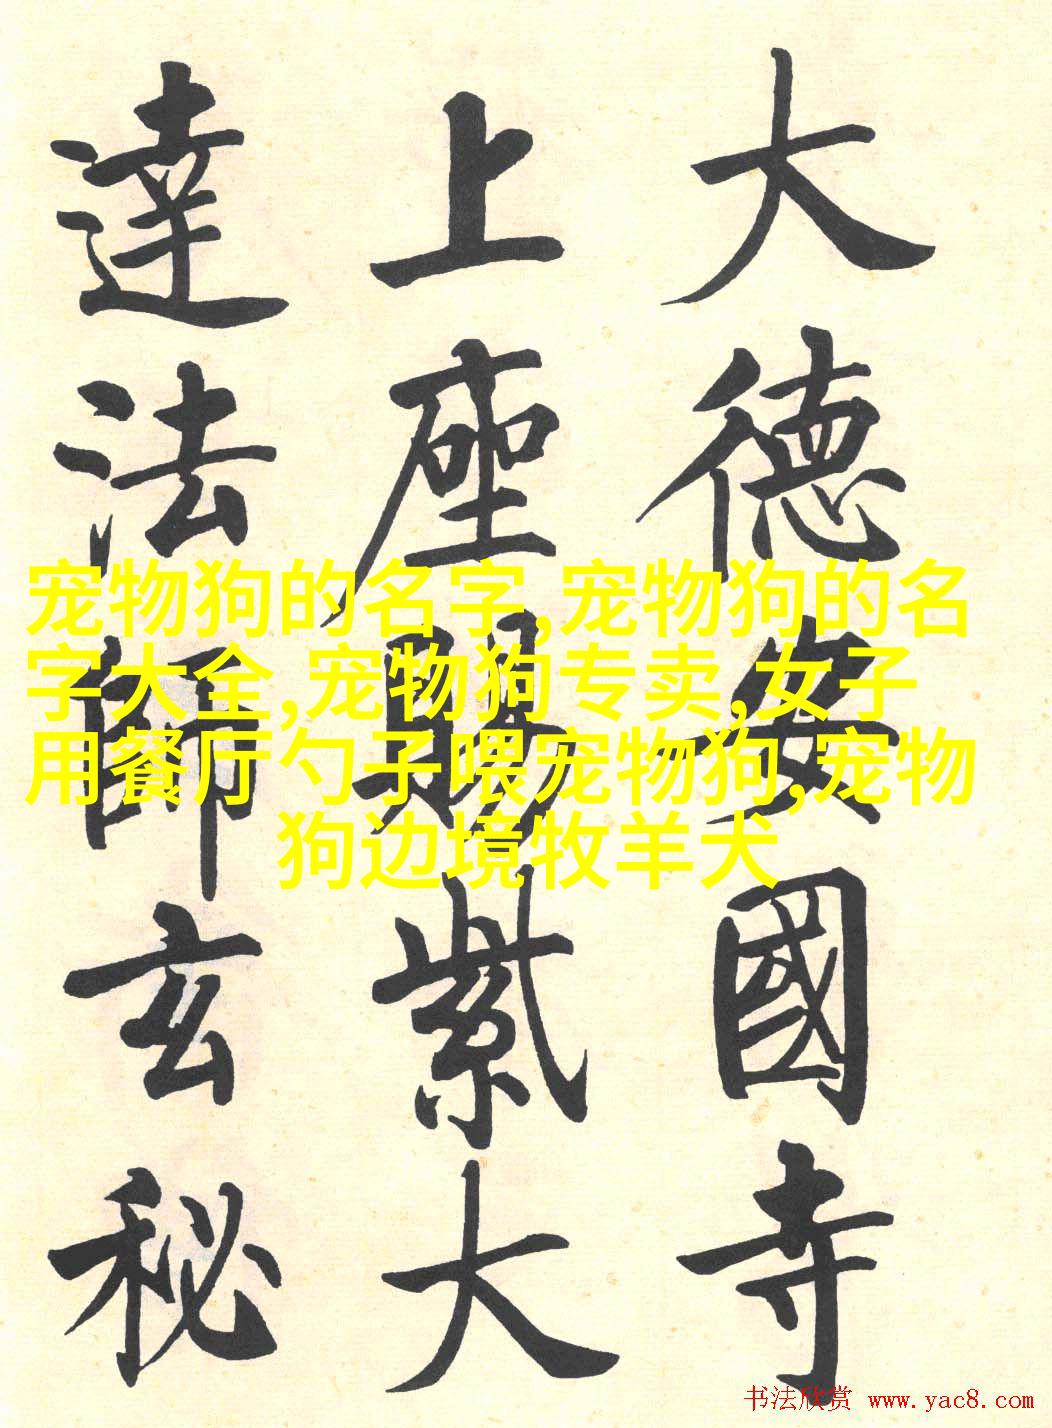 大德安國寺
上座賜紫大
達法師玄秘
宠物狗的名字,宠物狗的名
字大全,宠物狗专卖,女子
用餐厅勺子喂宠物狗,宠物
狗边境牧羊犬
书法欣赏 www.yac8.com